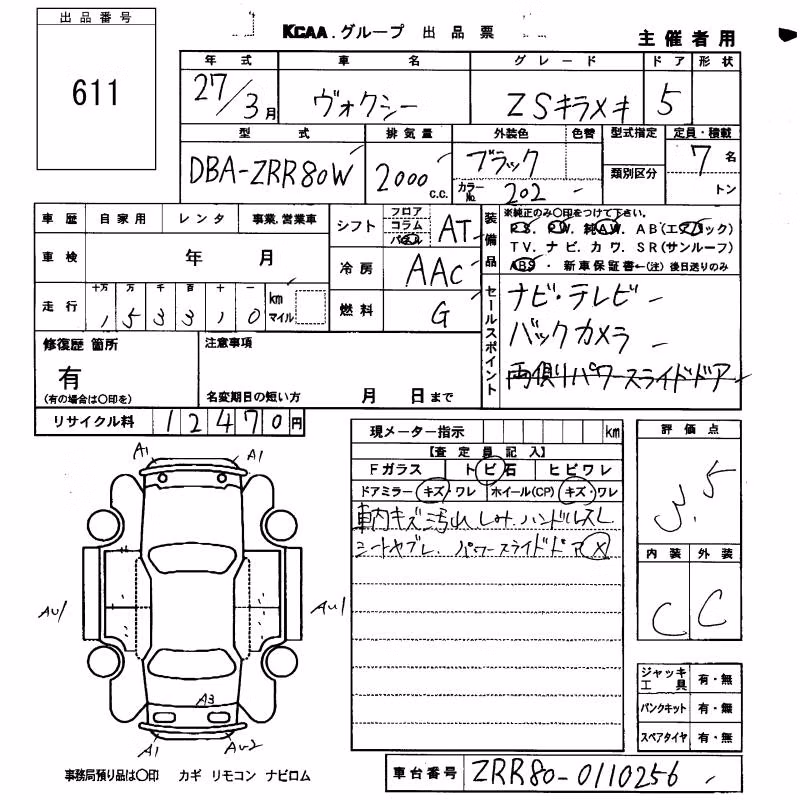 出品番号
611
KCAA.グループ 出品票
主催者用
年式 車名 グレード ドア 形状
27/3月 ヴォクシー ZSキラメキ 5
型式 排気量 外装色 色替 型式指定 定員・積載
DBA-ZRR80W 2000 c.c. ブラック 類別区分 7名
カラーNo. 202 トン
車歴 自家用 レンタ 事業,営業車
車検 年 月
走行 十万 万 千 百 十 一 km マイル
153310
シフト フロア コラム パネル AT
冷房 AAC
燃料 G
装備品
※純正のみ○印をつけて下さい。
PS. PW. 純AW. AB(エアバック)
TV. ナビ. カワ. SR(サンルーフ)
ABS・新車保証書←(注)後日送りのみ
セールスポイント
ナビ・テレビ
バックカメラ
両側パワースライドドア
修復歴 箇所
有
(有の場合は○印を)
注意事項
名変期日の短い方 月 日まで
リサイクル料 12470円
現メーター指示 km
【査定員記入】
Fガラス トビ石 ヒビワレ
ドアミラー キズ・ワレ ホイール(CP) キズ・ワレ
車内キズ汚れしみ.ハンドルスレ
シートヤブレ. パワースライドドア×
評価点
3.5
内装 外装
C C
ジャッキ工具 有・無
パンクキット 有・無
スペアタイヤ 有・無
A1 A1
AU1 AU1
A3
A1 AU2
事務局預り品は○印 カギ リモコン ナビロム
車台番号 ZRR80-0110256